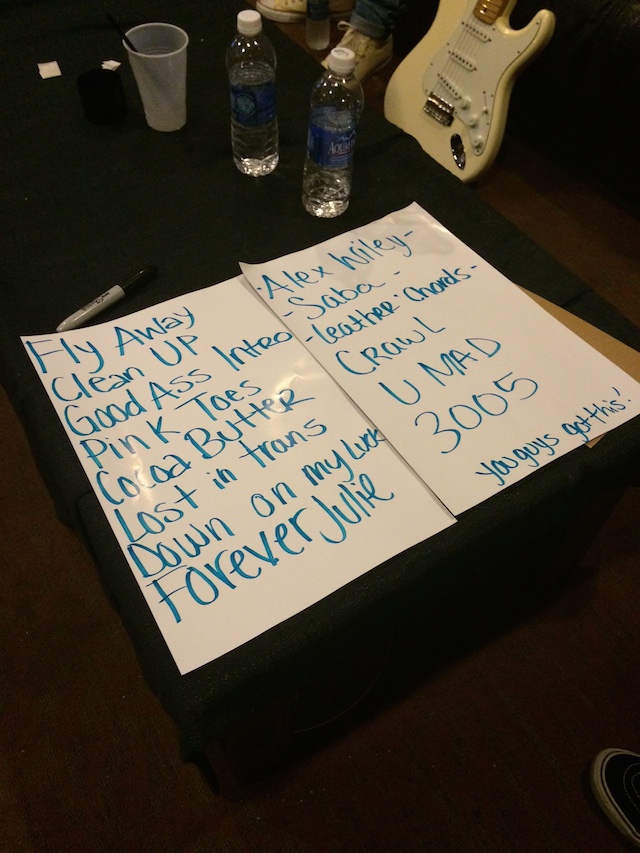 Fly Away
Clean UP
Good Ass Intro
Pink Toes
Cocoa Butter
Lost in trans
Down on my Luck
Forever Julie
-Alex Wiley-
-Saba-
-Leather Chords-
Crawl
U MAD
3005
you guys got this!